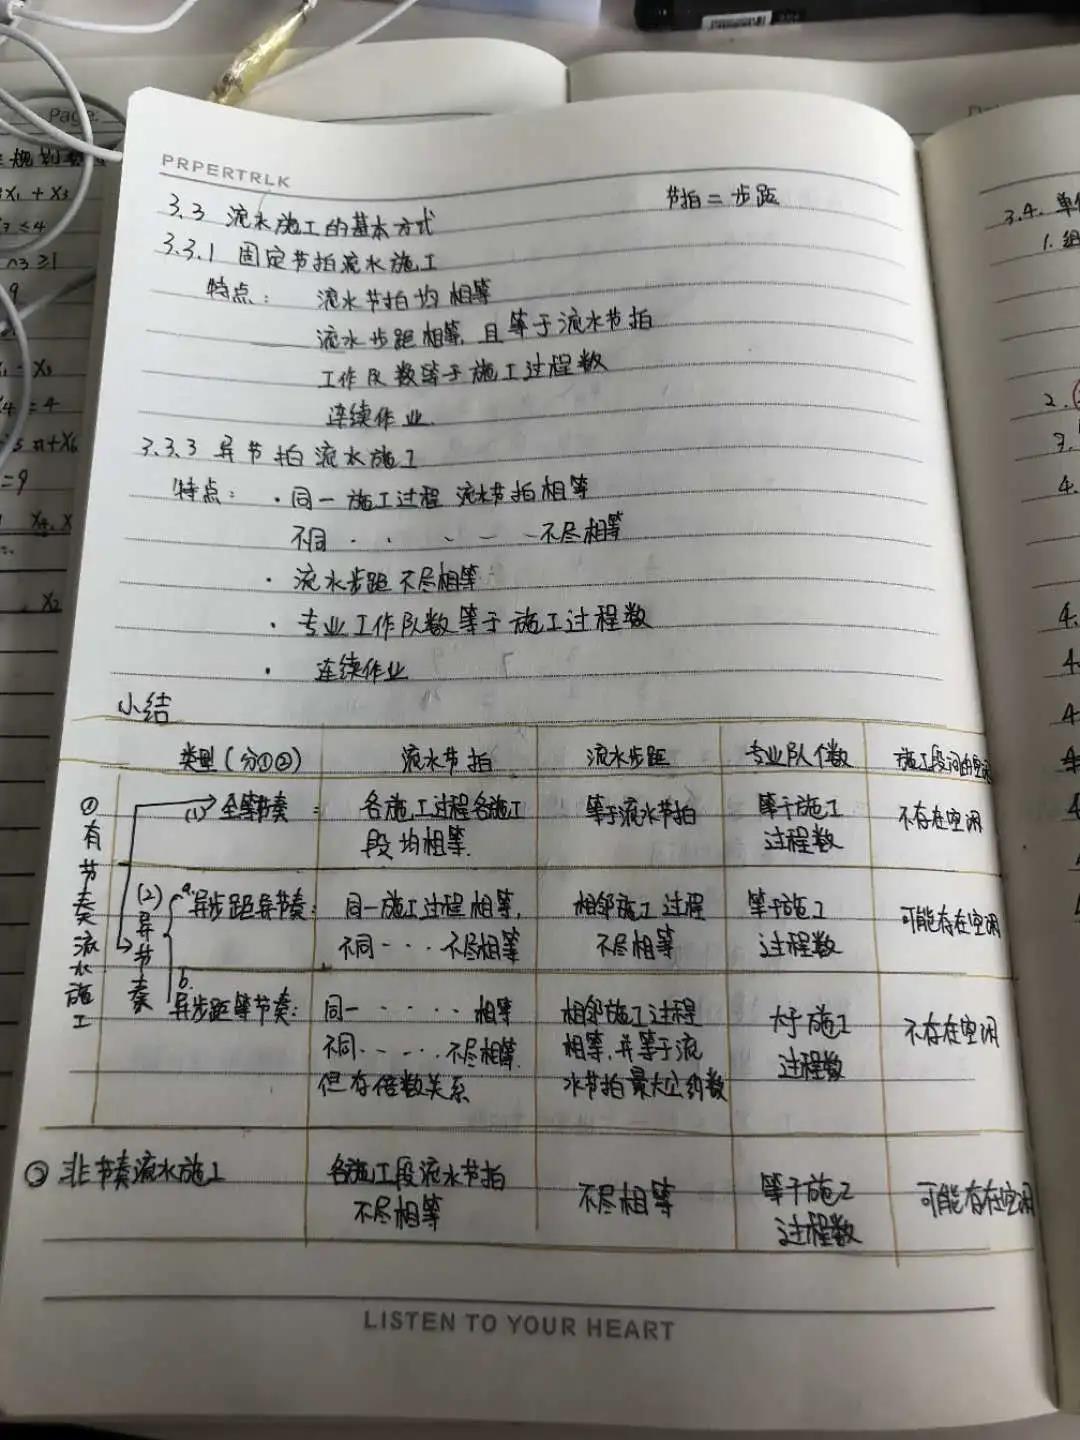 Page:
PRPERTRLK
节拍 = 步距
3.3 流水施工的基本方式
3.3.1 固定节拍流水施工
特点: 流水节拍均相等
流水步距相等,且等于流水节拍
工作队数等于施工过程数
连续作业.
3.3.3 异节拍流水施工
特点: ·同一施工过程 流水节拍相等
不同 · · - - - 不尽相等
· 流水步距不尽相等
· 专业工作队数等于施工过程数
· 连续作业
小结
类型(分①②) 流水节拍 流水步距 专业队伍数 施工段间的空闲
①有节奏流水施工
(1) 全等节奏: 各施工过程各施工 等于流水节拍 等于施工 不存在空闲
段均相等. 过程数
(2) 异节奏
a. 异步距异节奏: 同一施工过程相等, 相邻施工过程 等于施工 可能存在空闲
不同一···不尽相等 不尽相等 过程数
b.
异步距等节奏: 同一····相等 相邻施工过程 大于施工 不存在空闲
不同·-··不尽相等. 相等,并等于流 过程数
但存倍数关系 水节拍最大公约数
② 非节奏流水施工 各施工段流水节拍 不尽相等 等于施工 可能存在空闲
不尽相等 过程数
LISTEN TO YOUR HEART
3.4. 单
1. 组
2.
3.
4.